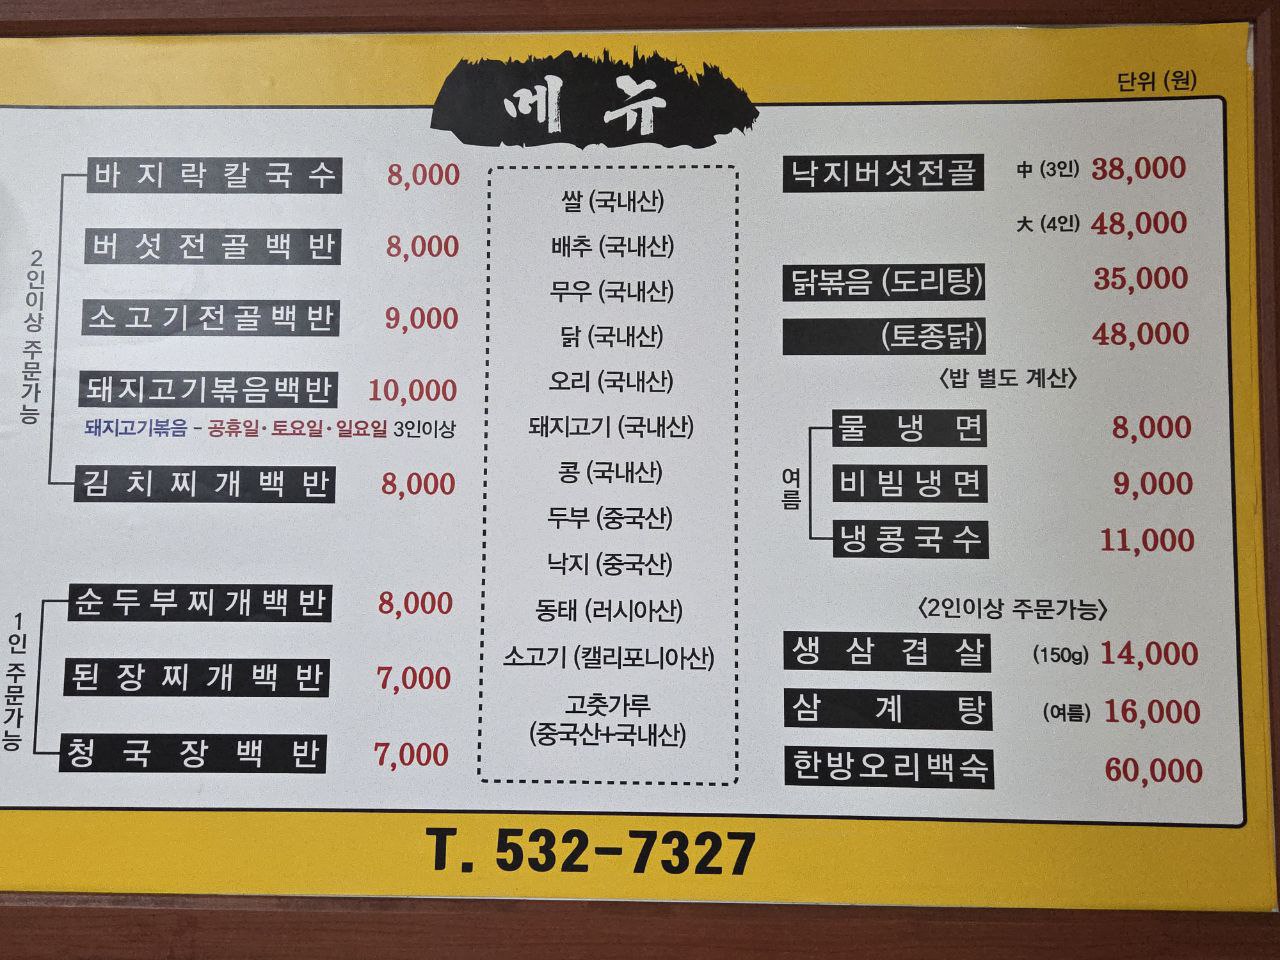 메뉴
단위 (원)
2인이상 주문가능
바지락칼국수 8,000
버섯전골백반 8,000
소고기전골백반 9,000
돼지고기볶음백반 10,000
돼지고기볶음 - 공휴일·토요일·일요일 3인이상
김치찌개백반 8,000
1인 주문가능
순두부찌개백반 8,000
된장찌개백반 7,000
청국장백반 7,000
쌀 (국내산)
배추 (국내산)
무우 (국내산)
닭 (국내산)
오리 (국내산)
돼지고기 (국내산)
콩 (국내산)
두부 (중국산)
낙지 (중국산)
동태 (러시아산)
소고기 (캘리포니아산)
고춧가루
(중국산+국내산)
낙지버섯전골 中 (3인) 38,000
大 (4인) 48,000
닭볶음 (도리탕) 35,000
(토종닭) 48,000
〈밥 별도 계산〉
여름
물냉면 8,000
비빔냉면 9,000
냉콩국수 11,000
〈2인이상 주문가능〉
생삼겹살 (150g) 14,000
삼계탕 (여름) 16,000
한방오리백숙 60,000
T. 532-7327